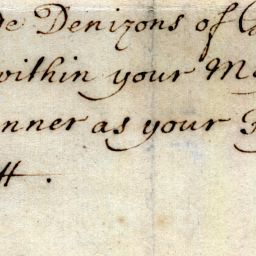 de Denizons of
within your Ma
nner as your
tt.